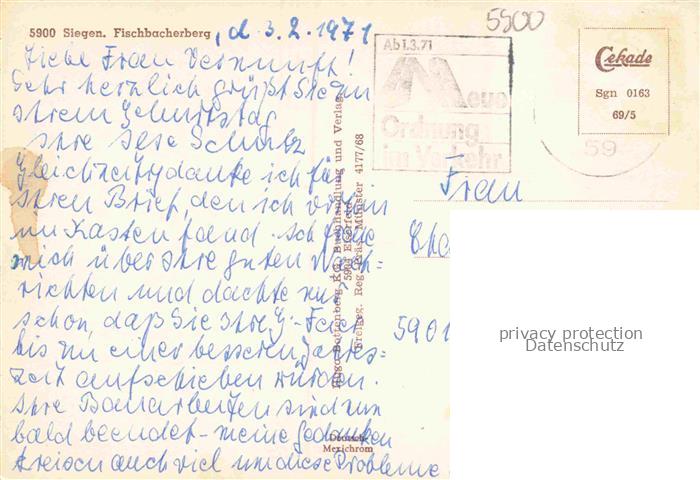 5900 Siegen. Fischbacherberg, d. 3.2.1971
5900
Liebe Frau Vernunft!
Sehr herzlich grüßt Sie zu
Ihrem Geburtstag
Ihre Schulz
Gleichzeitig danke ich für
Ihren Brief, den ich
im Kasten fand. Ich freue
mich über Ihre guten Nach=
richten und dachte mir
schon, daß Sie Ihre G.-Feier
bis zu einer besseren Jahres=
zeit aufschieben würden.
Ihre Bauarbeiten sind nun
bald beendet - meine Gedanken
kreisen auch viel um diese Probleme
Ab 1.3.71
Neue
Ordnung
im Verkehr
59
Cekade
Sgn 0163
69/5
Hugo Bottenberg KG. Buchhandlung und Verlag,
5904 Eiserfeld
Freigeg. Reg. Präs. Münster 4177/68
Mexichrom
Frau
5901
privacy protection
Datenschutz